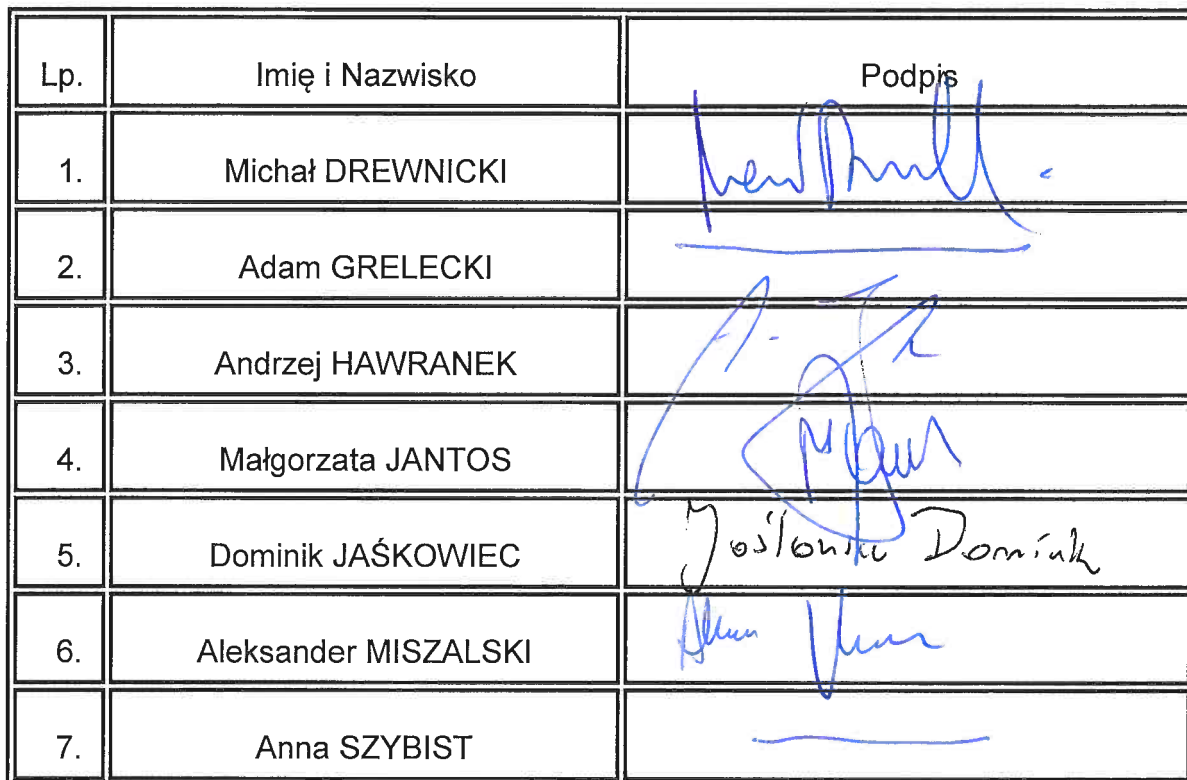 Lp. Imię i Nazwisko Podpis
1. Michał DREWNICKI
2. Adam GRELECKI
3. Andrzej HAWRANEK
4. Małgorzata JANTOS
5. Dominik JAŚKOWIEC Dominik
6. Aleksander MISZALSKI
7. Anna SZYBIST